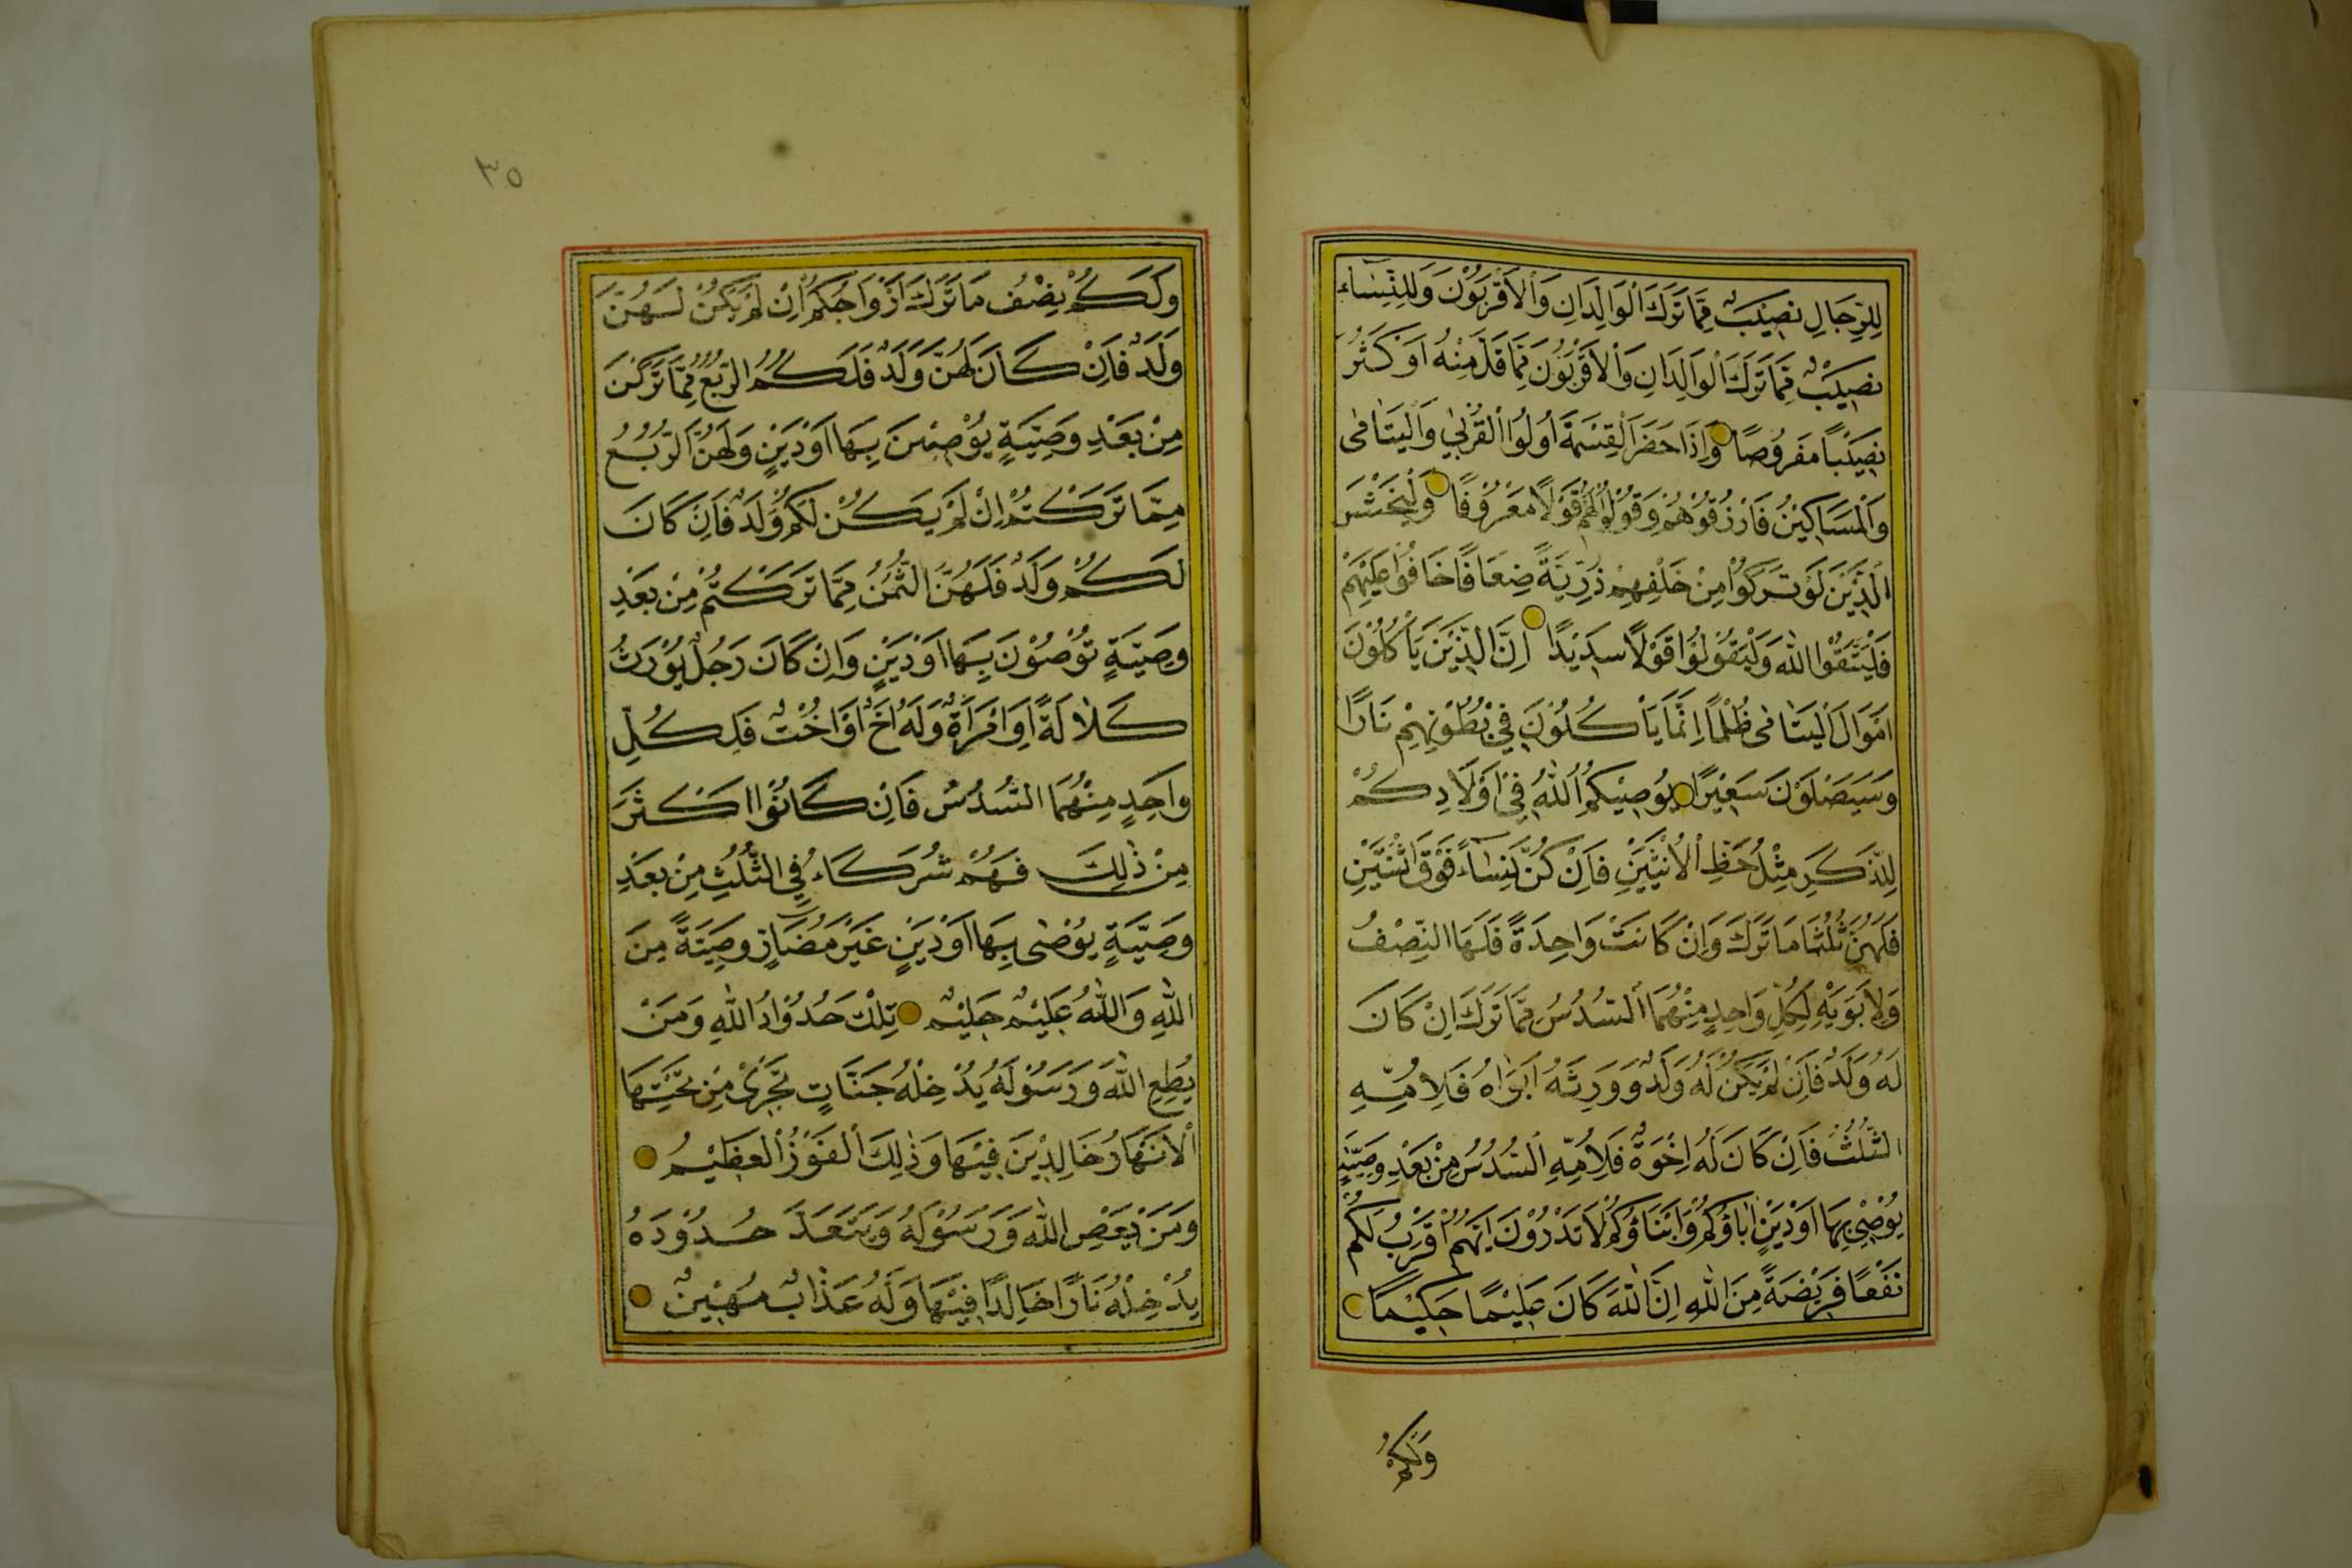 لِلرِّجَالِ نَصِيبٌ مِمَّا تَرَكَ الْوَالِدَانِ وَالْاَقْرَبُونَ وَلِلنِّسَاءِ
نَصِيبٌ مِمَّا تَرَكَ الْوَالِدَانِ وَالْاَقْرَبُونَ مِمَّا قَلَّ مِنْهُ اَوْ كَثُرَ
نَصِيبًا مَفْرُوضًا وَاِذَا حَضَرَ الْقِسْمَةَ اُولُوا الْقُرْبٰى وَالْيَتَامٰى
وَالْمَسَاكِينُ فَارْزُقُوهُمْ وَقُولُوا لَهُمْ قَوْلًا مَعْرُوفًا وَلْيَخْشَ
الَّذِينَ لَوْ تَرَكُوا مِنْ خَلْفِهِمْ ذُرِّيَّةً ضِعَافًا خَافُوا عَلَيْهِمْ
فَلْيَتَّقُوا اللّٰهَ وَلْيَقُولُوا قَوْلًا سَدِيدًا اِنَّ الَّذِينَ يَأْكُلُونَ
اَمْوَالَ الْيَتَامٰى ظُلْمًا اِنَّمَا يَأْكُلُونَ فِي بُطُونِهِمْ نَارًا
وَسَيَصْلَوْنَ سَعِيرًا يُوصِيكُمُ اللّٰهُ فِي اَوْلَادِكُمْ
لِلذَّكَرِ مِثْلُ حَظِّ الْاُنْثَيَيْنِ فَاِنْ كُنَّ نِسَاءً فَوْقَ اثْنَتَيْنِ
فَلَهُنَّ ثُلُثَا مَا تَرَكَ وَاِنْ كَانَتْ وَاحِدَةً فَلَهَا النِّصْفُ
وَلِاَبَوَيْهِ لِكُلِّ وَاحِدٍ مِنْهُمَا السُّدُسُ مِمَّا تَرَكَ اِنْ كَانَ
لَهُ وَلَدٌ فَاِنْ لَمْ يَكُنْ لَهُ وَلَدٌ وَوَرِثَهُ اَبَوَاهُ فَلِاُمِّهِ
الثُّلُثُ فَاِنْ كَانَ لَهُ اِخْوَةٌ فَلِاُمِّهِ السُّدُسُ مِنْ بَعْدِ وَصِيَّةٍ
يُوصِي بِهَا اَوْ دَيْنٍ اٰبَاؤُكُمْ وَاَبْنَاؤُكُمْ لَا تَدْرُونَ اَيُّهُمْ اَقْرَبُ لَكُمْ
نَفْعًا فَرِيضَةً مِنَ اللّٰهِ اِنَّ اللّٰهَ كَانَ عَلِيمًا حَكِيمًا
وَلَكُمْ
٣٥
وَلَكُمْ نِصْفُ مَا تَرَكَ اَزْوَاجُكُمْ اِنْ لَمْ يَكُنْ لَهُنَّ
وَلَدٌ فَاِنْ كَانَ لَهُنَّ وَلَدٌ فَلَكُمُ الرُّبُعُ مِمَّا تَرَكْنَ
مِنْ بَعْدِ وَصِيَّةٍ يُوصِينَ بِهَا اَوْ دَيْنٍ وَلَهُنَّ الرُّبُعُ
مِمَّا تَرَكْتُمْ اِنْ لَمْ يَكُنْ لَكُمْ وَلَدٌ فَاِنْ كَانَ
لَكُمْ وَلَدٌ فَلَهُنَّ الثُّمُنُ مِمَّا تَرَكْتُمْ مِنْ بَعْدِ
وَصِيَّةٍ تُوصُونَ بِهَا اَوْ دَيْنٍ وَاِنْ كَانَ رَجُلٌ يُورَثُ
كَلَالَةً اَوِ امْرَاَةٌ وَلَهُ اَخٌ اَوْ اُخْتٌ فَلِكُلِّ
وَاحِدٍ مِنْهُمَا السُّدُسُ فَاِنْ كَانُوا اَكْثَرَ
مِنْ ذٰلِكَ فَهُمْ شُرَكَاءُ فِي الثُّلُثِ مِنْ بَعْدِ
وَصِيَّةٍ يُوصٰى بِهَا اَوْ دَيْنٍ غَيْرَ مُضَارٍّ وَصِيَّةً مِنَ
اللّٰهِ وَاللّٰهُ عَلِيمٌ حَلِيمٌ تِلْكَ حُدُودُ اللّٰهِ وَمَنْ
يُطِعِ اللّٰهَ وَرَسُولَهُ يُدْخِلْهُ جَنَّاتٍ تَجْرِي مِنْ تَحْتِهَا
الْاَنْهَارُ خَالِدِينَ فِيهَا وَذٰلِكَ الْفَوْزُ الْعَظِيمُ
وَمَنْ يَعْصِ اللّٰهَ وَرَسُولَهُ وَيَتَعَدَّ حُدُودَهُ
يُدْخِلْهُ نَارًا خَالِدًا فِيهَا وَلَهُ عَذَابٌ مُهِينٌ